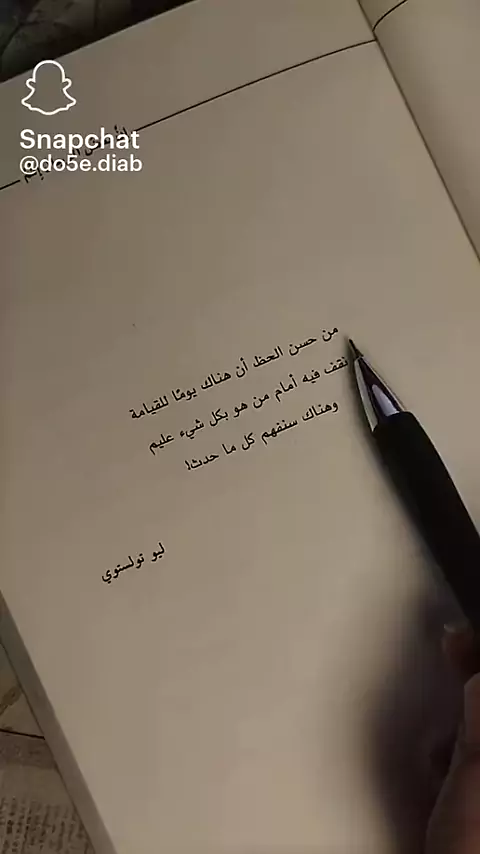 Snapchat
@do5e.diab
من حسن الحظ أن هناك يومًا للقيامة
نقف فيه أمام من هو بكل شيء عليم
وهناك سنفهم كل ما حدث!
ليو تولستوي